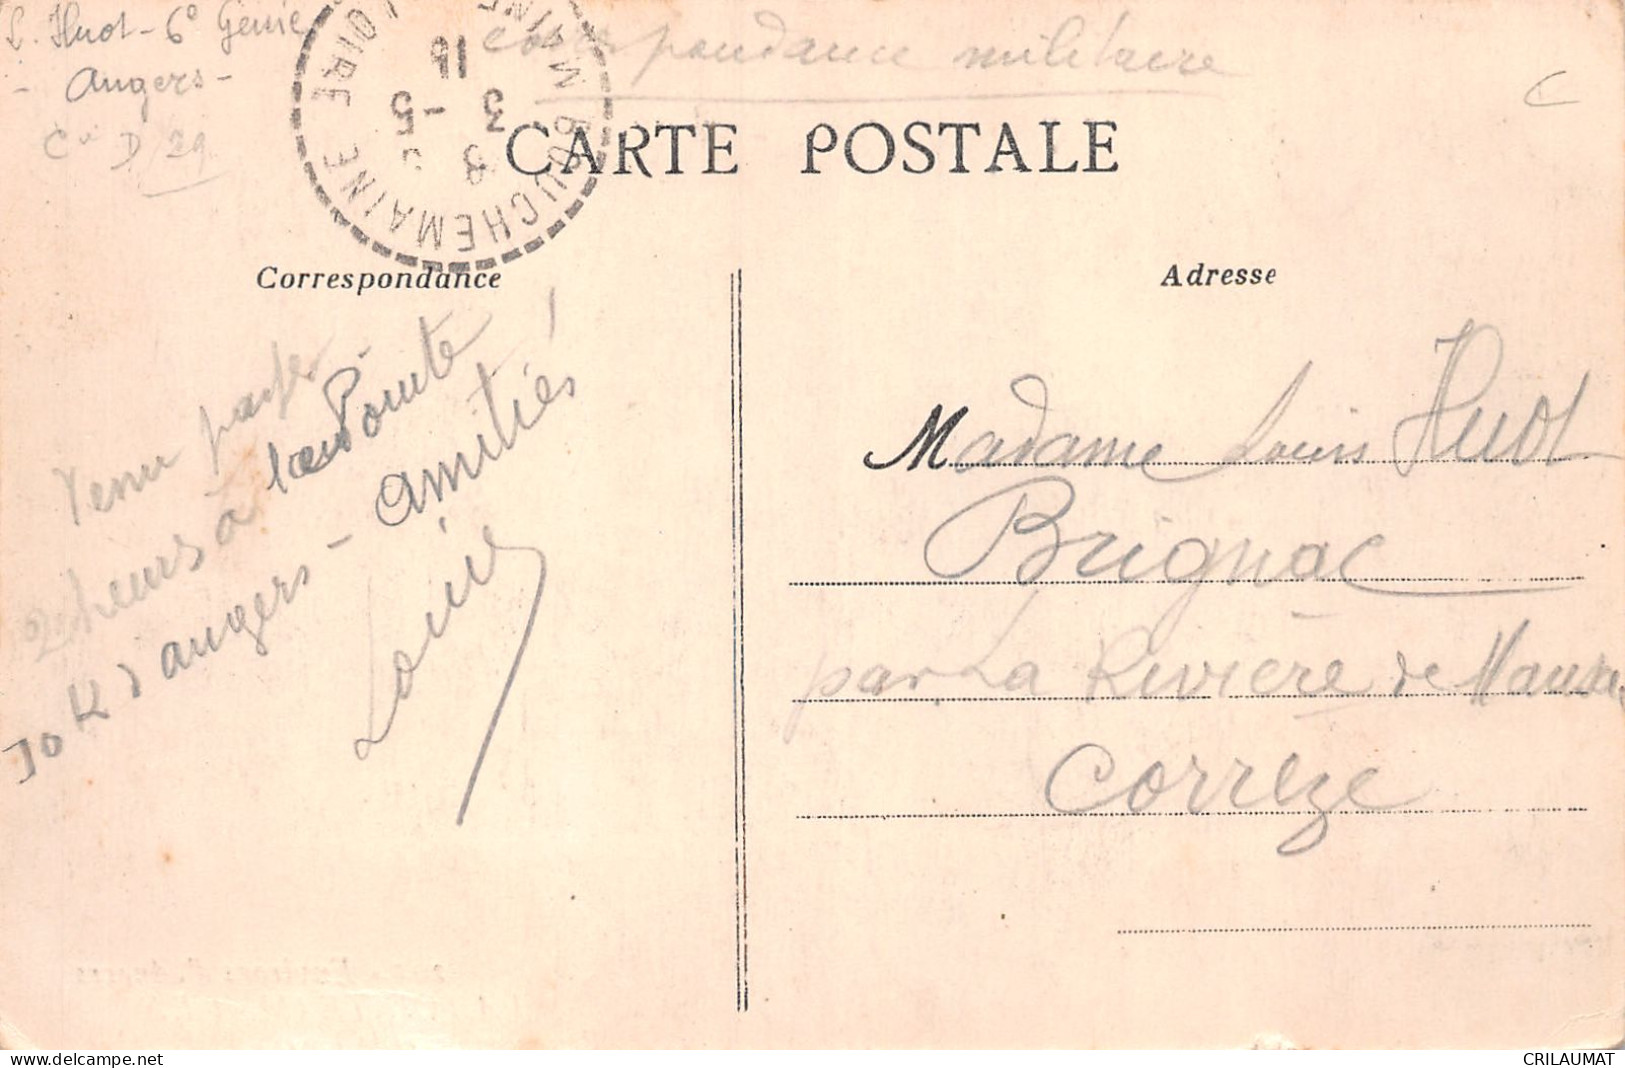 L. Huot - 6e Génie
- Angers -
Cie D 29
Correspondance militaire
CARTE POSTALE
BOUCHEMAINE
MAINE
LOIRE
16
3 -5
Correspondance
Adresse
Venu passer
2 heures à la Pointe
10 K d'angers - amitiés
Louis
Madame Louis Huot
Brignac
par La Rivière de Mansac
Corrèze
CRILAUMAT
www.delcampe.net